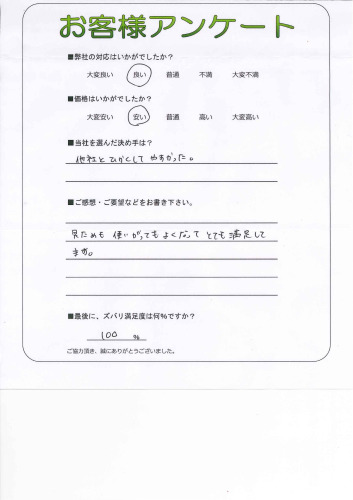 お客様アンケート
■弊社の対応はいかがでしたか？
大変良い 良い 普通 不満 大変不満
■価格はいかがでしたか？
大変安い 安い 普通 高い 大変高い
■当社を選んだ決め手は？
他社とひかくして やすかった。
■ご感想・ご要望などをお書き下さい。
見ためも 使いがってもよくなって とても満足して
ます。
■最後に、ズバリ満足度は何％ですか？
100 %
ご協力頂き、誠にありがとうございました。